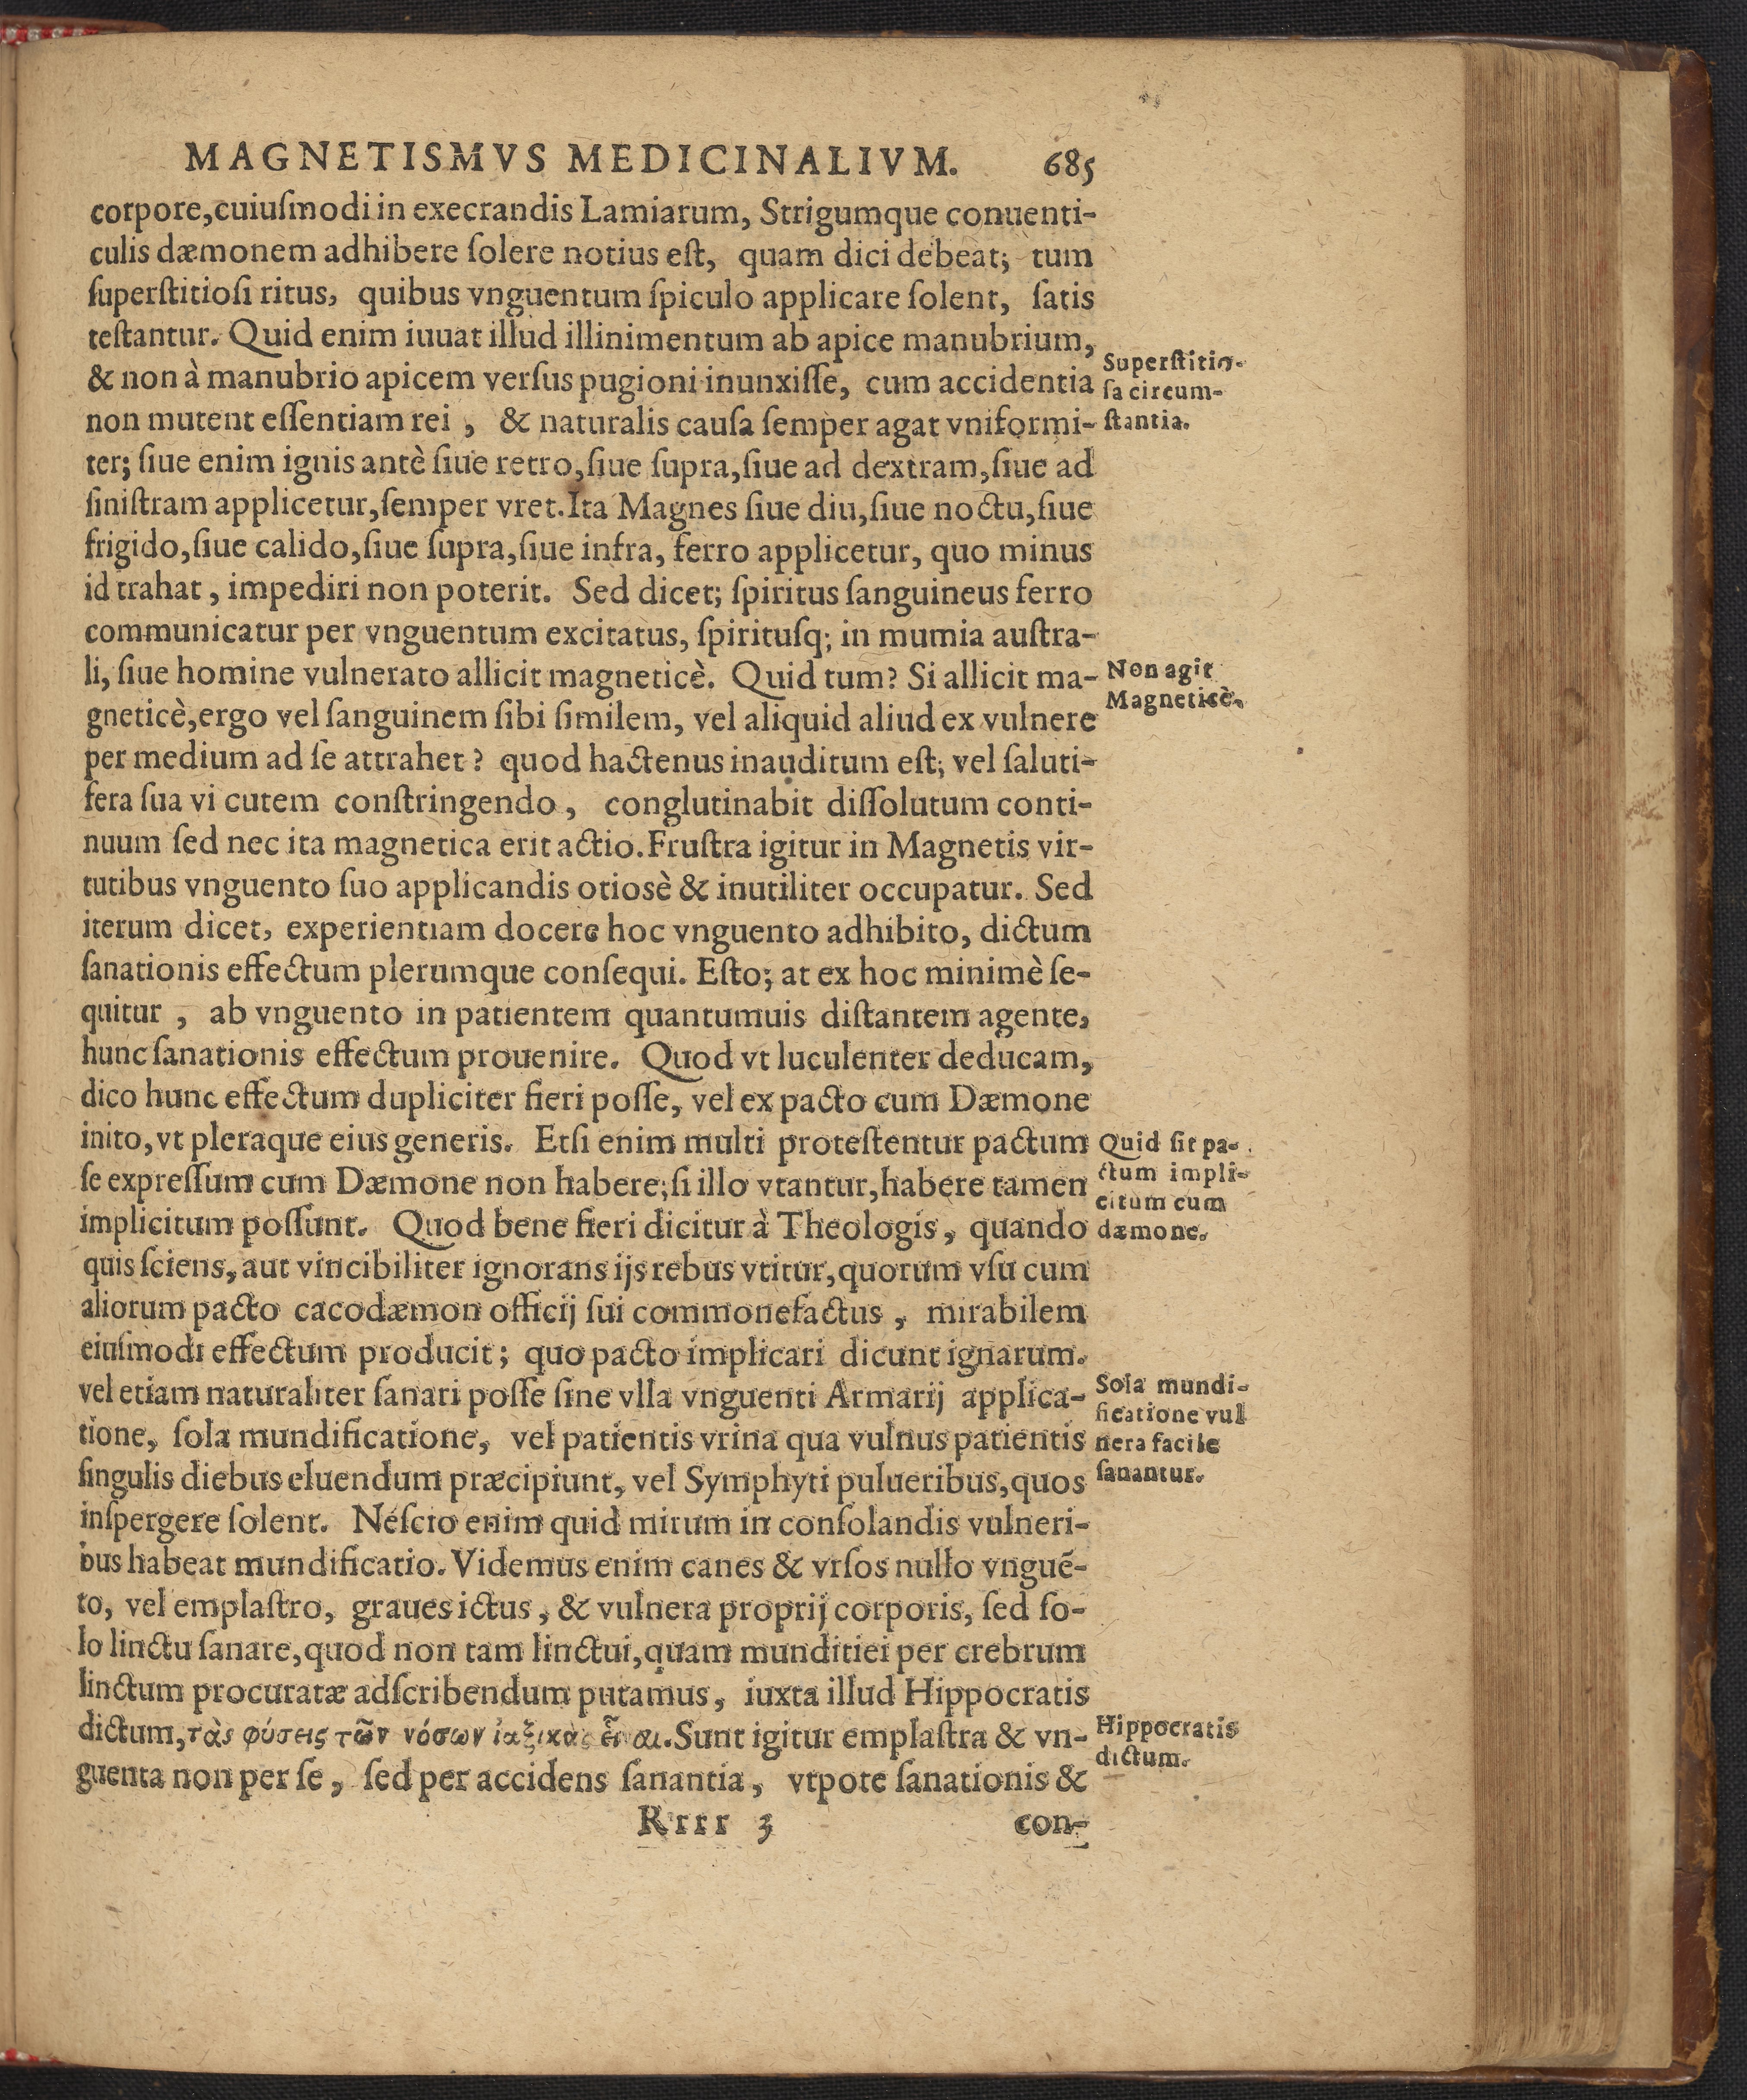 MAGNETISMVS MEDICINALIVM. 685
corpore,cuiuſmodi in execrandis Lamiarum, Strigumque conuenti-
culis dæmonem adhibere ſolere notius eſt, quam dici debeat; tum
ſuperſtitioſi ritus, quibus vnguentum ſpiculo applicare ſolent, ſatis
teſtantur. Quid enim iuuat illud illinimentum ab apice manubrium,
& non à manubrio apicem verſus pugioni inunxiſſe, cum accidentia
non mutent eſſentiam rei , & naturalis cauſa ſemper agat vniformi-
ter; ſiue enim ignis antè ſiue retro,ſiue ſupra,ſiue ad dextram,ſiue ad
ſiniſtram applicetur,ſemper vret.Ita Magnes ſiue diu,ſiue noctu,ſiue
frigido,ſiue calido,ſiue ſupra,ſiue infra, ferro applicetur, quo minus
id trahat , impediri non poterit. Sed dicet; ſpiritus ſanguineus ferro
communicatur per vnguentum excitatus, ſpirituſq; in mumia auſtra-
li, ſiue homine vulnerato allicit magneticè. Quid tum? Si allicit ma-
gneticè,ergo vel ſanguinem ſibi ſimilem, vel aliquid aliud ex vulnere
per medium ad ſe attrahet ? quod hactenus inauditum eſt; vel ſaluti-
fera ſua vi cutem conſtringendo , conglutinabit diſſolutum conti-
nuum ſed nec ita magnetica erit actio.Fruſtra igitur in Magnetis vir-
tutibus vnguento ſuo applicandis otiosè & inutiliter occupatur. Sed
iterum dicet, experientiam docere hoc vnguento adhibito, dictum
ſanationis effectum plerumque conſequi. Eſto; at ex hoc minimè ſe-
quitur , ab vnguento in patientem quantumuis diſtantem agente,
hunc ſanationis effectum prouenire. Quod vt luculenter deducam,
dico hunc effectum dupliciter fieri poſſe, vel ex pacto cum Dæmone
inito,vt pleraque eius generis. Etſi enim multi proteſtentur pactum
ſe expreſſum cum Dæmone non habere;ſi illo vtantur,habere tamen
implicitum poſſunt. Quod bene fieri dicitur à Theologis, quando
quis ſciens, aut vincibiliter ignorans ijs rebus vtitur,quorum vſu cum
aliorum pacto cacodæmon officij ſui commonefactus , mirabilem
eiuſmodi effectum producit; quo pacto implicari dicunt ignarum.
vel etiam naturaliter ſanari poſſe ſine vlla vnguenti Armarij applica-
tione, ſola mundificatione, vel patientis vrina qua vulnus patientis
ſingulis diebus eluendum præcipiunt, vel Symphyti pulueribus,quos
inſpergere ſolent. Neſcio enim quid mirum in conſolandis vulneri-
bus habeat mundificatio. Videmus enim canes & vrſos nullo vnguẽ-
to, vel emplaſtro, graues ictus , & vulnera proprij corporis, ſed ſo-
lo linctu ſanare,quod non tam linctui,quam munditiei per crebrum
linctum procuratæ adſcribendum putamus, iuxta illud Hippocratis
dictum,τὰς φύσεις τῶν νόσων Sunt igitur emplaſtra & vn-
guenta non per ſe , ſed per accidens ſanantia , vtpote ſanationis &
Rrrr 3 con-
Superſtitio-
ſa circum-
ſtantia.
Non agit
Magneticè.
Quid ſit pa-
ctum impli-
citum cum
dæmone.
Sola mundi-
ficatione vul
nera facile
ſanantur.
Hippocratis
dictum.